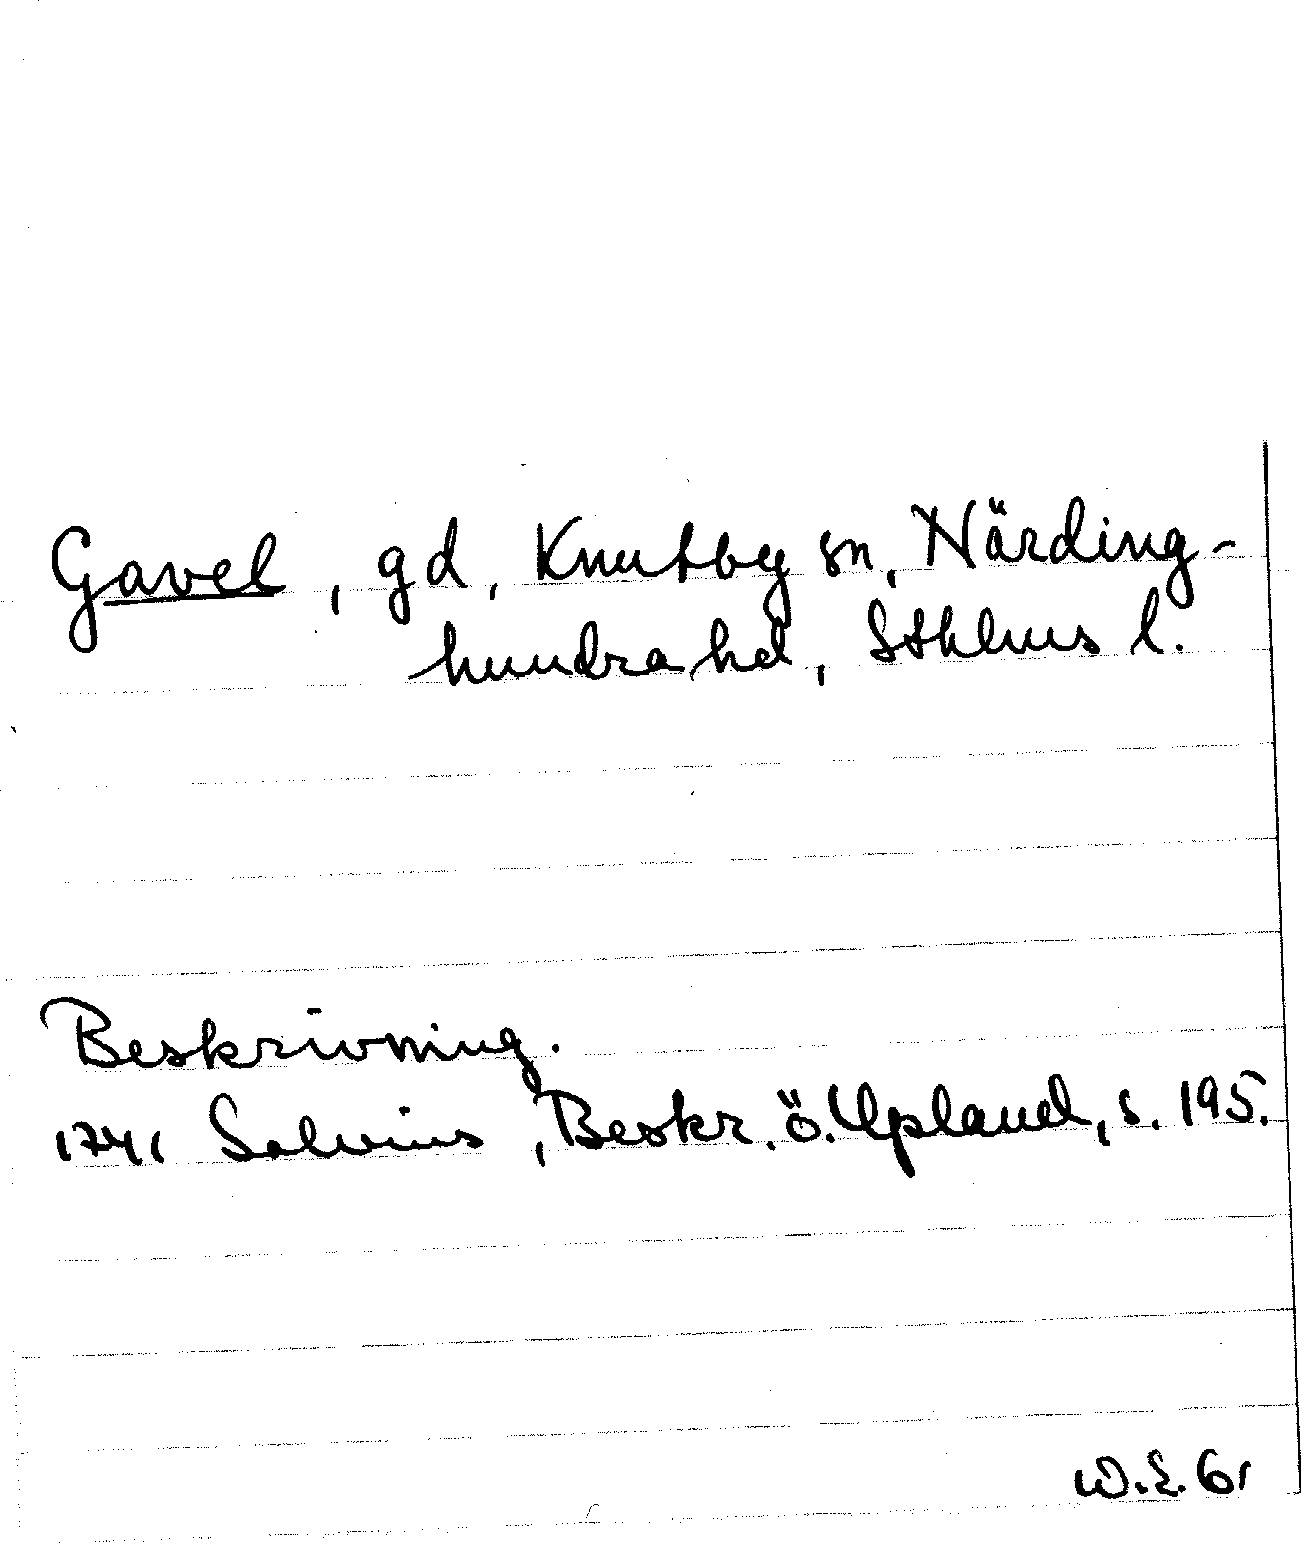 Gavel, gd, Knutby sn, Närding-
hundra hd, Sthlms l.
Beskrivning.
1741 Salvius, Beskr. ö. Upland, s. 195.
W.E. 61